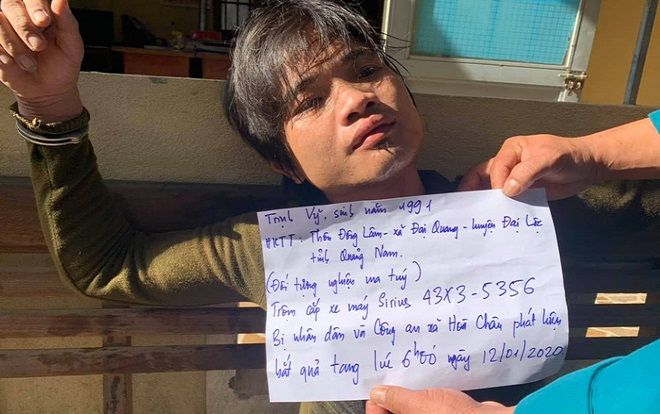 Trịnh Vỹ, sinh năm 1991
HKTT: Thôn Đông Lâm - xã Đại Quang - huyện Đại Lộc
tỉnh Quảng Nam.
(Đối tượng nghiện ma tuý)
Trộm cắp xe máy Sirius 43X3-5356
Bị nhân dân và Công an xã Hoà Châu phát hiện
bắt quả tang lúc 6h00 ngày 12/01/2020